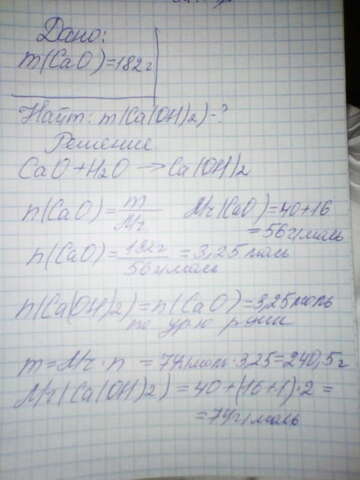 Дано:
m(CaO)=182г
Найт: m(Ca(OH)2)-?
Решение
CaO+H2O → Ca(OH)2
n(CaO)=m/Mr Mr(CaO)=40+16
=56г/моль
n(CaO)=182г/56г/моль=3,25моль
n(Ca(OH)2)=n(CaO)=3,25моль
по ур-ю
m=Mr·n =74г/моль·3,25=240,5г
Mr(Ca(OH)2)=40+(16+1)·2=
=74г/моль